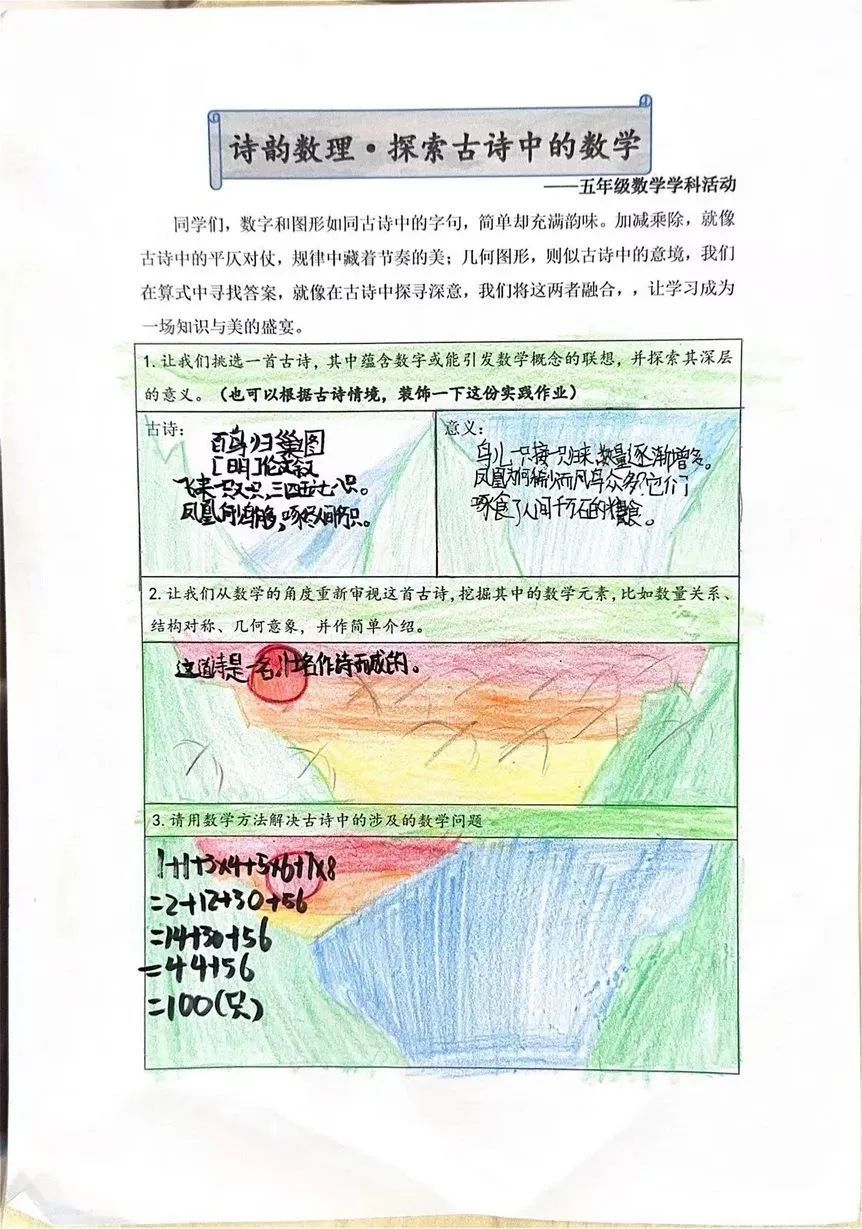 诗韵数理·探索古诗中的数学
——五年级数学学科活动
同学们，数字和图形如同古诗中的字句，简单却充满韵味。加减乘除，就像
古诗中的平仄对仗，规律中藏着节奏的美；几何图形，则似古诗中的意境，我们
在算式中寻找答案，就像在古诗中探寻深意，我们将这两者融合，，让学习成为
一场知识与美的盛宴。
1.让我们挑选一首古诗，其中蕴含数字或能引发数学概念的联想，并探索其深层
的意义。（也可以根据古诗情境，装饰一下这份实践作业）
古诗：
百鸟归巢图
[明]伦文叙
飞来一只又一只，三四五六七八只。
凤凰何少鸟何多，啄尽人间千石。
意义：
鸟儿一只接一只归来，数量逐渐增多。
凤凰为何稀少而凡鸟众多？它们
啄食了人间千万石的粮食。
2.让我们从数学的角度重新审视这首古诗，挖掘其中的数学元素，比如数量关系、
结构对称、几何意象，并作简单介绍。
这道诗是一名让名作诗而成的。
3.请用数学方法解决古诗中的涉及的数学问题
1+1+3×4+5×6+7×8
=2+12+30+56
=14+30+56
=44+56
=100(只)